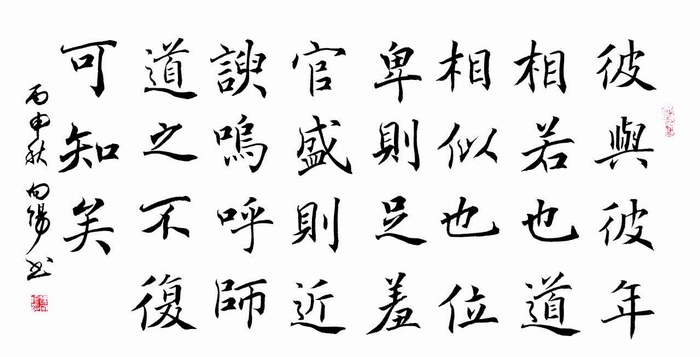 彼與彼年
相若也道
相似也位
卑則足羞
官盛則近
諛嗚呼師
道之不復
可知矣
丙申秋向陽书